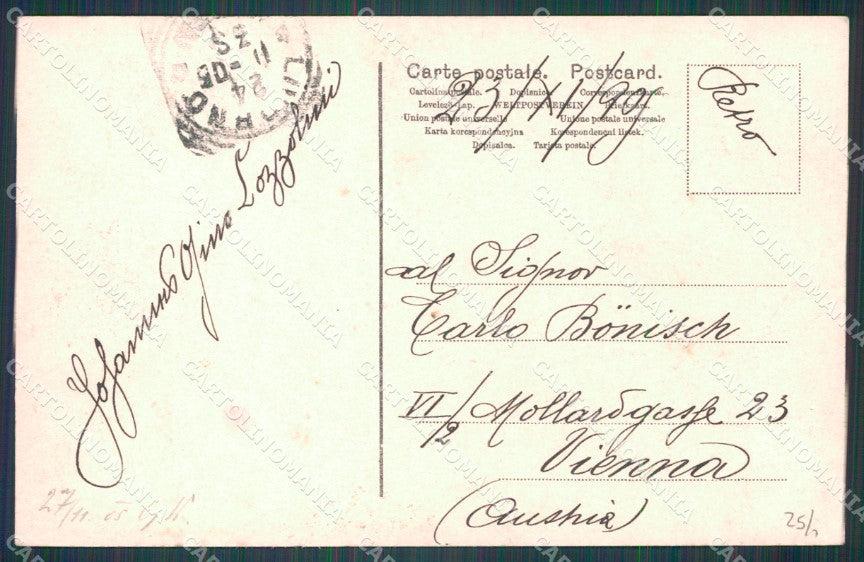 Carte postale. Postcard.
Cartolina postale. Dopisnice. Correspondenzkarte.
Levelező-Lap. WELTPOSTVEREIN Briefkaart.
Union postale universelle Unione postale universale
Karta korespondencyjna Korespondencni listek.
Dopisnica. Tarjeta postal.
Retro
al Signor
Carlo Bönisch
VI/2 Mollardgasse 23
Vienna
(Austria)
LUGANO
24
XI 05
Lozzolini
27/11. 05
25/
CARTOLINOMANIA